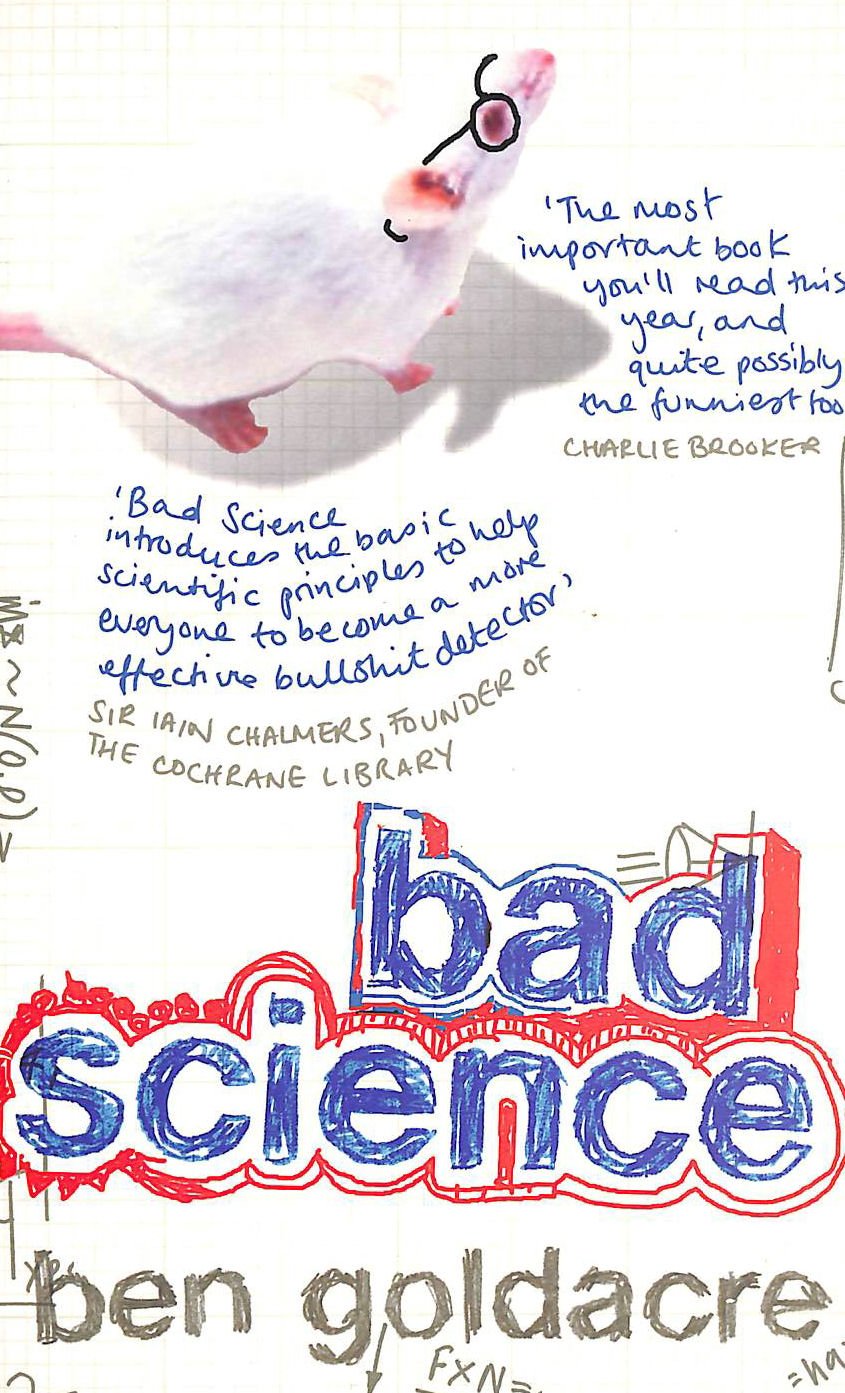 'The most
important book
you'll read this
year, and
quite possibly
the funniest too
CHARLIE BROOKER
'Bad Science
introduces the basic
scientific principles to help
everyone to become a more
effective bullshit detector'
SIR IAIN CHALMERS, FOUNDER OF
THE COCHRANE LIBRARY
bad
science
ben goldacre
FXN=